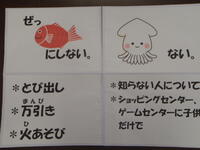 ぜっ
にしない。
ない。
＊とび出し
まんび
＊万引き
ひ
＊火あそび
＊知らない人について
＊ショッピングセンター、
ゲームセンターに子供
だけで